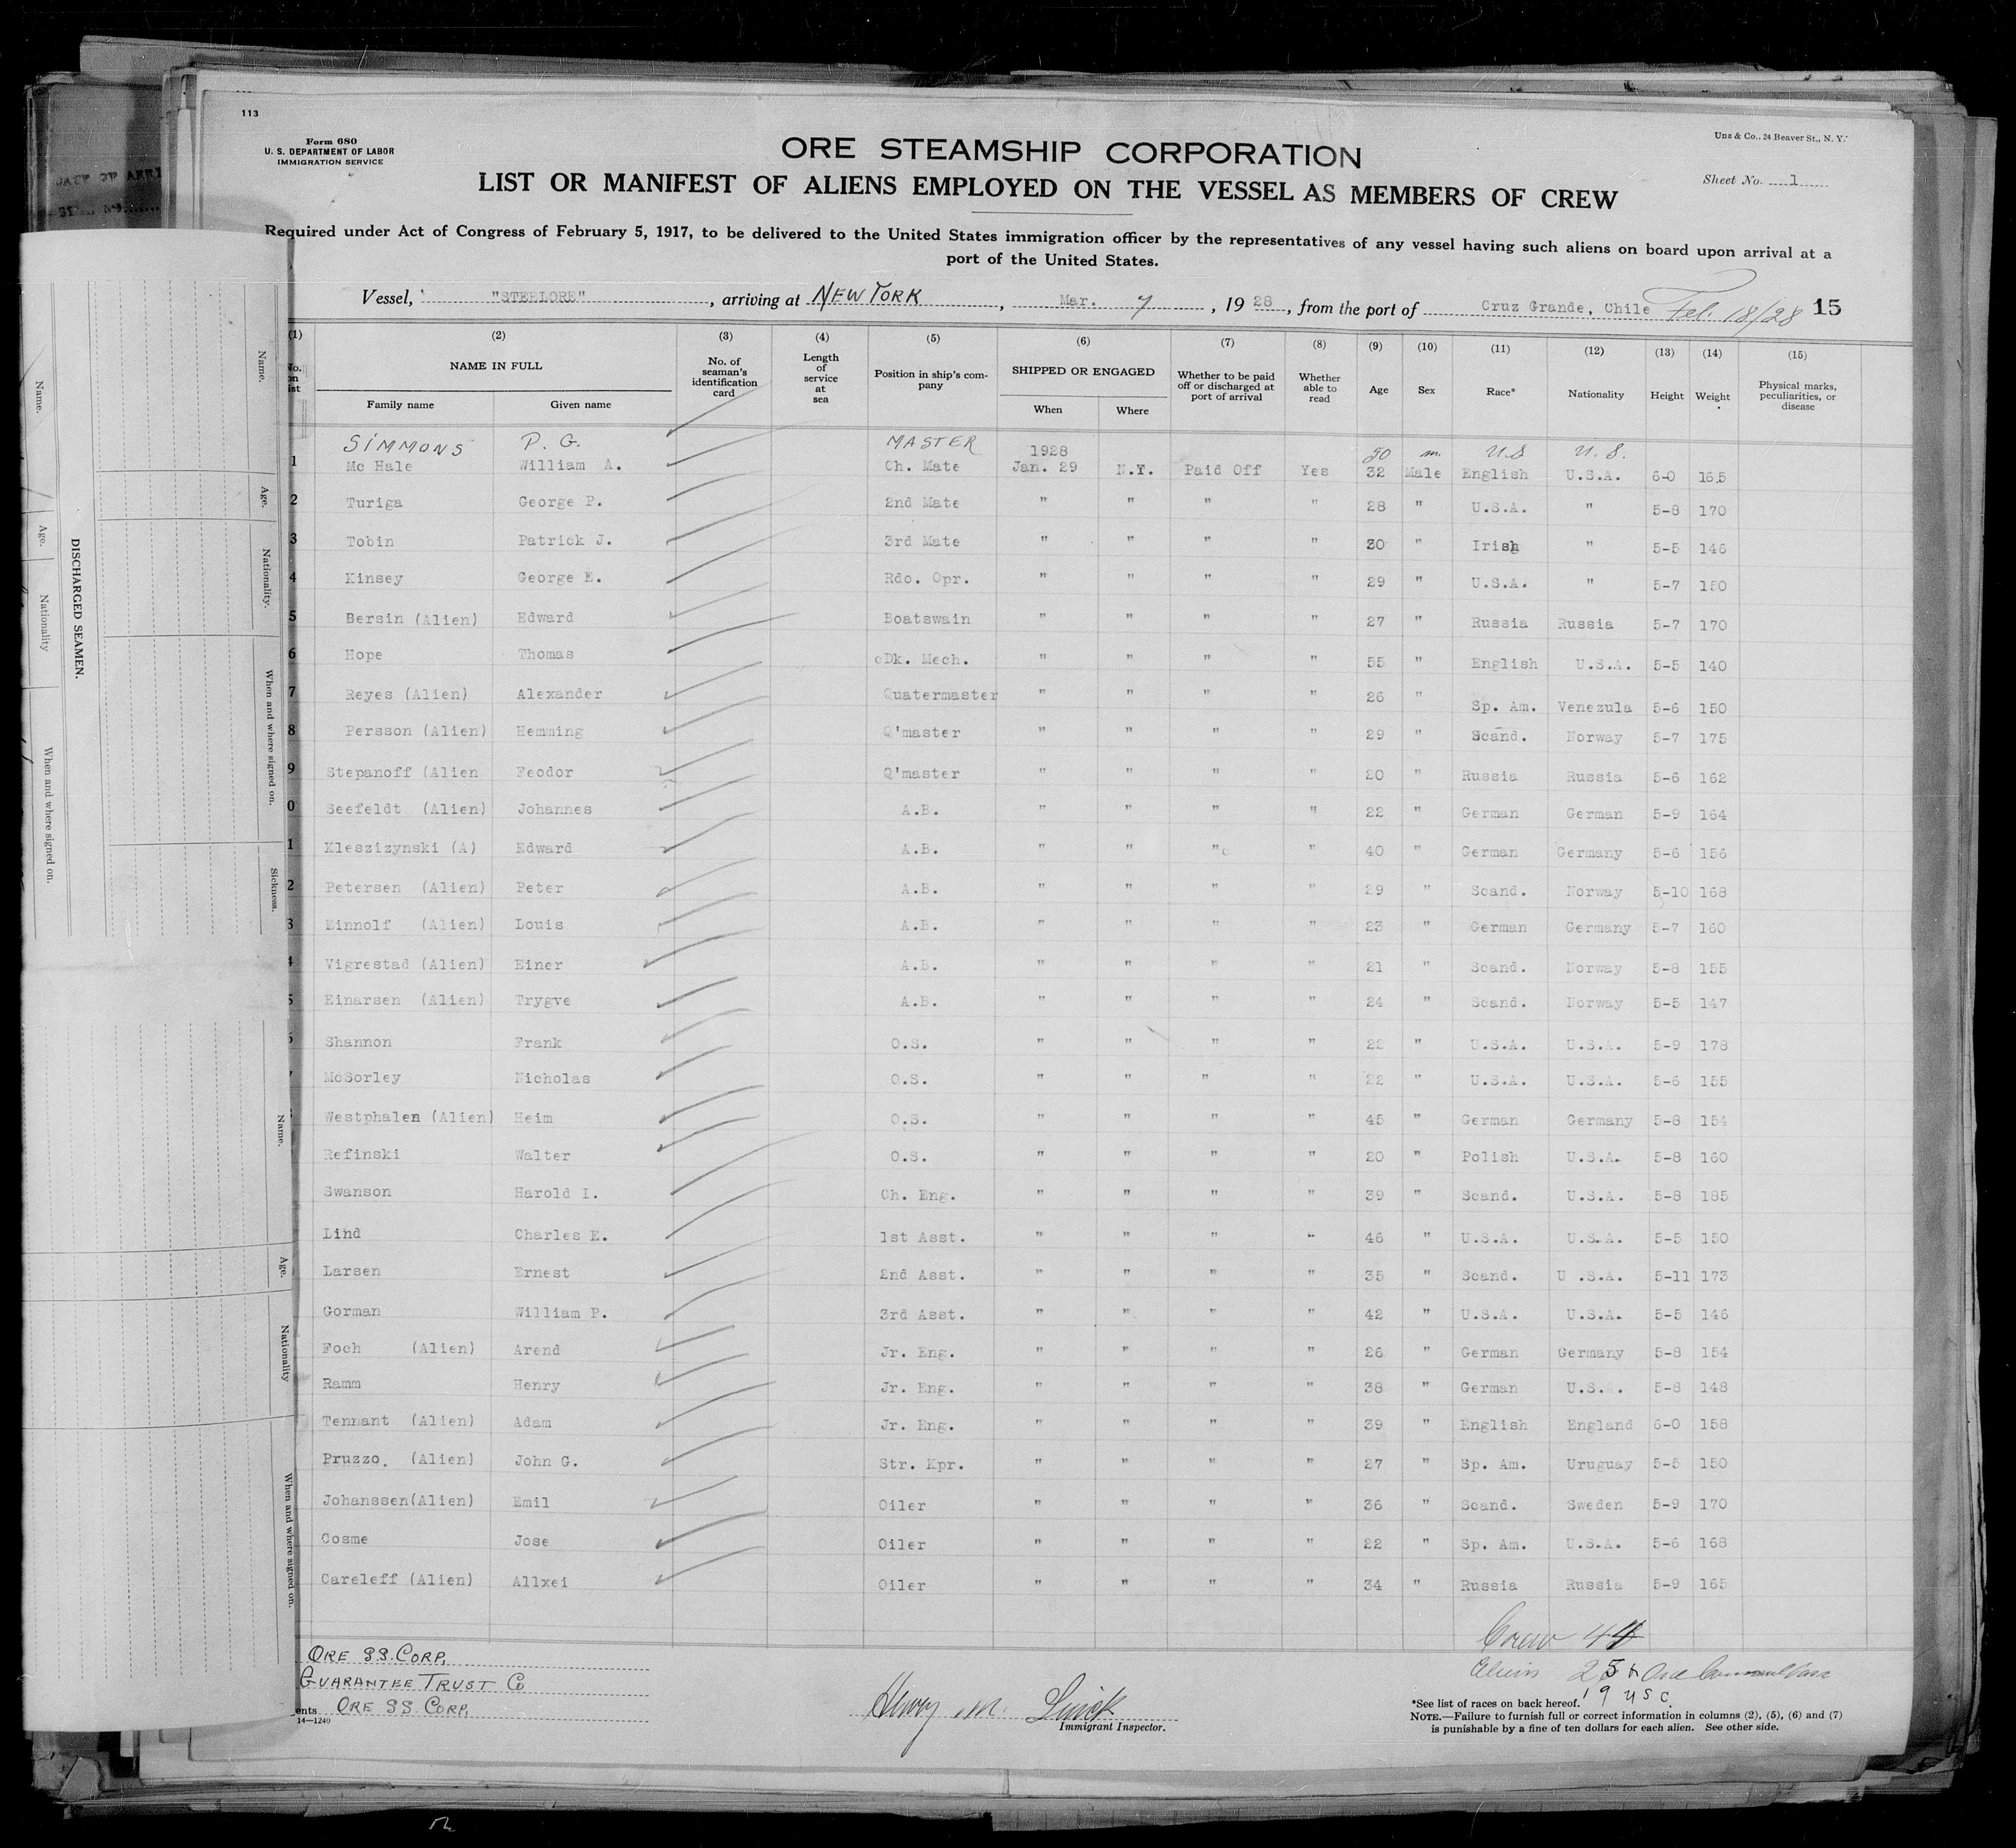 113
Form 680
U. S. DEPARTMENT OF LABOR
IMMIGRATION SERVICE
Unz & Co., 24 Beaver St., N. Y.
ORE STEAMSHIP CORPORATION
Sheet No. 1
LIST OR MANIFEST OF ALIENS EMPLOYED ON THE VESSEL AS MEMBERS OF CREW
Required under Act of Congress of February 5, 1917, to be delivered to the United States immigration officer by the representatives of any vessel having such aliens on board upon arrival at a
port of the United States.
Vessel, "STEELORE", arriving at NEW YORK, Mar. 7, 1928, from the port of Cruz Grande, Chile Feb. 18/28 15
(1) (2) (3) (4) (5) (6) (7) (8) (9) (10) (11) (12) (13) (14) (15)
No. on list NAME IN FULL No. of seaman's identification card Length of service at sea Position in ship's company SHIPPED OR ENGAGED Whether to be paid off or discharged at port of arrival Whether able to read Age Sex Race* Nationality Height Weight Physical marks, peculiarities, or disease
Family name Given name When Where
SIMMONS P. G. MASTER 1928 50 m. U.S U.S.
1 Mc Hale William A. Ch. Mate Jan. 29 N.Y. Paid Off Yes 32 Male English U.S.A. 6-0 165
2 Turiga George P. 2nd Mate " " " " 28 " U.S.A. " 5-8 170
3 Tobin Patrick J. 3rd Mate " " " " 30 " Irish " 5-5 146
4 Kinsey George E. Rdo. Opr. " " " " 29 " U.S.A. " 5-7 150
5 Bersin (Alien) Edward Boatswain " " " " 27 " Russia Russia 5-7 170
6 Hope Thomas Dk. Mech. " " " " 55 " English U.S.A. 5-5 140
7 Reyes (Alien) Alexander Quatermaster " " " " 26 " Sp. Am. Venezula 5-6 150
8 Persson (Alien) Hemming Q'master " " " " 29 " Scand. Norway 5-7 175
9 Stepanoff (Alien Feodor Q'master " " " " 20 " Russia Russia 5-6 162
0 Seefeldt (Alien) Johannes A.B. " " " " 22 " German German 5-9 164
1 Kleszizynski (A) Edward A.B. " " " " 40 " German Germany 5-6 156
2 Petersen (Alien) Peter A.B. " " " " 29 " Scand. Norway 5-10 168
3 Einnolf (Alien) Louis A.B. " " " " 23 " German Germany 5-7 160
4 Vigrestad (Alien) Einer A.B. " " " " 21 " Scand. Norway 5-8 155
5 Einarsen (Alien) Trygve A.B. " " " " 24 " Scand. Norway 5-5 147
Shannon Frank O.S. " " " " 22 " U.S.A. U.S.A. 5-9 178
McSorley Nicholas O.S. " " " " 22 " U.S.A. U.S.A. 5-6 155
Westphalen (Alien) Heim O.S. " " " " 45 " German Germany 5-8 154
Refinski Walter O.S. " " " " 20 " Polish U.S.A. 5-8 160
Swanson Harold I. Ch. Eng. " " " " 39 " Scand. U.S.A. 5-8 185
Lind Charles E. 1st Asst. " " " " 46 " U.S.A. U.S.A. 5-5 150
Larsen Ernest 2nd Asst. " " " " 35 " Scand. U .S.A. 5-11 173
Gorman William P. 3rd Asst. " " " " 42 " U.S.A. U.S.A. 5-5 146
Foch (Alien) Arend Jr. Eng. " " " " 26 " German Germany 5-8 154
Ramm Henry Jr. Eng. " " " " 38 " German U.S.A. 5-8 148
Tennant (Alien) Adam Jr. Eng. " " " " 39 " English England 6-0 158
Pruzzo. (Alien) John G. Str. Kpr. " " " " 27 " Sp. Am. Uruguay 5-5 150
Johanssen(Alien) Emil Oiler " " " " 36 " Scand. Sweden 5-9 170
Cosme Jose Oiler " " " " 22 " Sp. Am. U.S.A. 5-6 168
Careleff (Alien) Allxei Oiler " " " " 34 " Russia Russia 5-9 165
Crew 44
Aliens 25
19 USC.
ORE SS. CORP.
GUARANTEE TRUST Co
ents ORE SS. CORP.
14—1240
Henry M.
Immigrant Inspector.
*See list of races on back hereof.
NOTE.—Failure to furnish full or correct information in columns (2), (5), (6) and (7)
is punishable by a fine of ten dollars for each alien. See other side.
DISCHARGED SEAMEN.
Name.
Age.
Nationality.
When and where signed on.
Sickness.
Name.
Age.
Nationality
When and where signed on.
Name.
Age.
Nationality
When and where signed on.